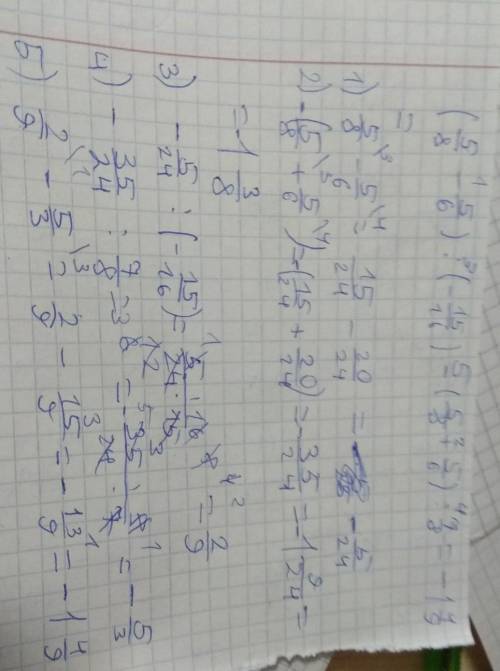 (5/8 - 5/6) : (-15/16) = (5/8 + 5/6) : 7/8 = -1 4/9
=
1) 5/8 \3 - 5/6 \4 = 15/24 - 20/24 = - 5/24
2) -(5/8 \3 + 5/6 \4) = -(15/24 + 20/24) = - 35/24 = -1 9/24 =
= -1 3/8
3) - 5/24 : (- 15/16) = 5 · 16 / 24 · 15 = 2/9
4) - 35/24 : 7/8 = - 35 · 8 / 24 · 7 = - 5/3
5) 2/9 \1 - 5/3 \3 = 2/9 - 15/9 = - 13/9 = -1 4/9